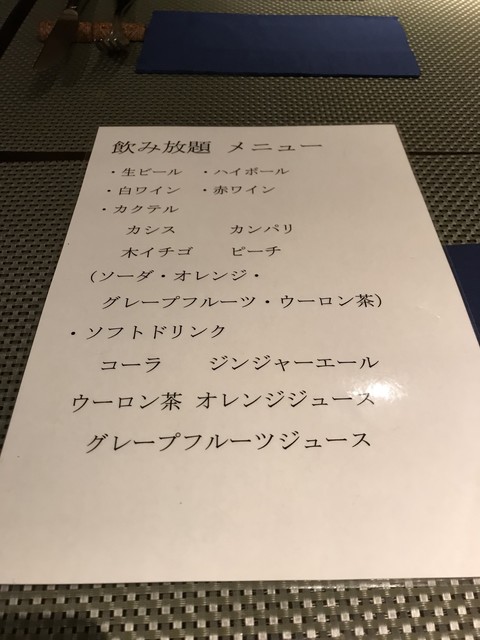 飲み放題 メニュー
・生ビール ・ハイボール
・白ワイン ・赤ワイン
・カクテル
カシス カンパリ
木イチゴ ピーチ
(ソーダ・オレンジ・
グレープフルーツ・ウーロン茶)
・ソフトドリンク
コーラ ジンジャーエール
ウーロン茶 オレンジジュース
グレープフルーツジュース